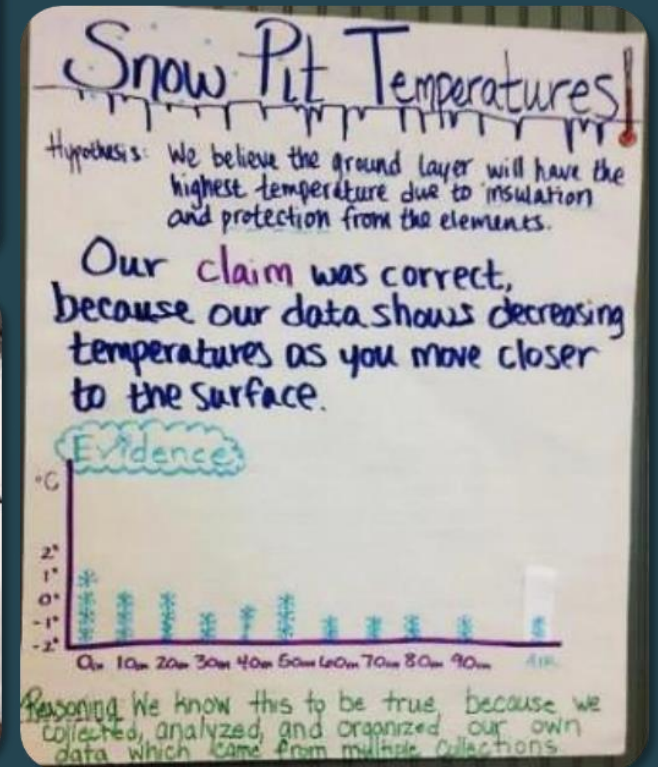 Snow Pit Temperatures!
Hypothesis: We believe the ground layer will have the
highest temperature due to insulation
and protection from the elements.
Our claim was correct,
because our data shows decreasing
temperatures as you move closer
to the surface.
Evidence
°C
2°
1°
0°
-1°
-2°
0cm 10cm 20cm 30cm 40cm 50cm 60cm 70cm 80cm 90cm AIR
Reasoning We know this to be true, because we
collected, analyzed, and organized our own
data which came from multiple collections.